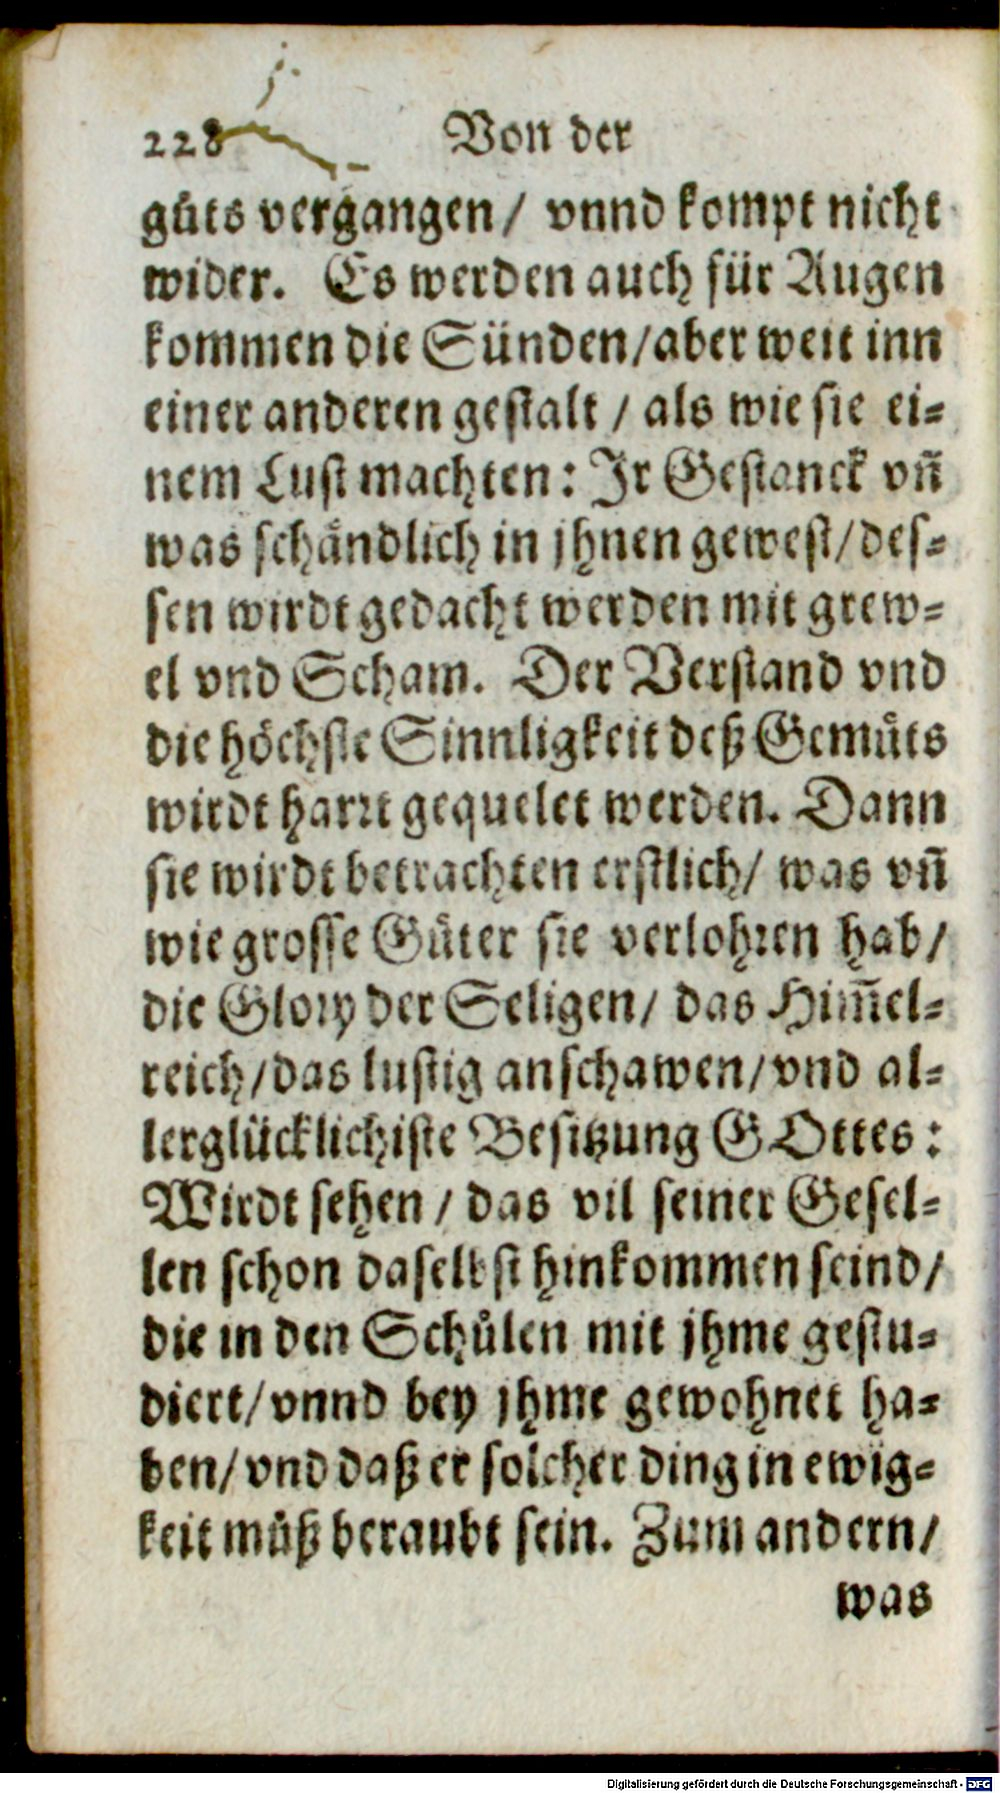 228 Von der
guͦts vergangen / vnnd kompt nicht
wider. Es werden auch für Augen
kommen die Sünden / aber weit inn
einer anderen gestalt / als wie sie ei-
nem Lust machten: Jr Gestanck vñ
was schaͤndlich in jhnen gewest / des-
sen wirdt gedacht werden mit grew-
el vnd Scham. Der Verstand vnd
die hoͤchste Sinnligkeit deß Gemuͤts
wirdt hartt gequelet werden. Dann
sie wirdt betrachten erstlich / was vñ
wie grosse Guͤter sie verlohren hab /
die Glory der Seligen / das Him̃el-
reich / das lustig anschawen / vnd al-
lerglücklichiste Besitzung GOttes:
Wirdt sehen / das vil seiner Gesel-
len schon daselbst hinkommen seind /
die in den Schuͦlen mit jhme gestu-
diert / vnnd bey jhme gewohnet ha-
ben / vnd daß er solcher ding in ewig-
keit muͦß beraubt sein. Zum andern /
was
Digitalisierung gefördert durch die Deutsche Forschungsgemeinschaft - DFG